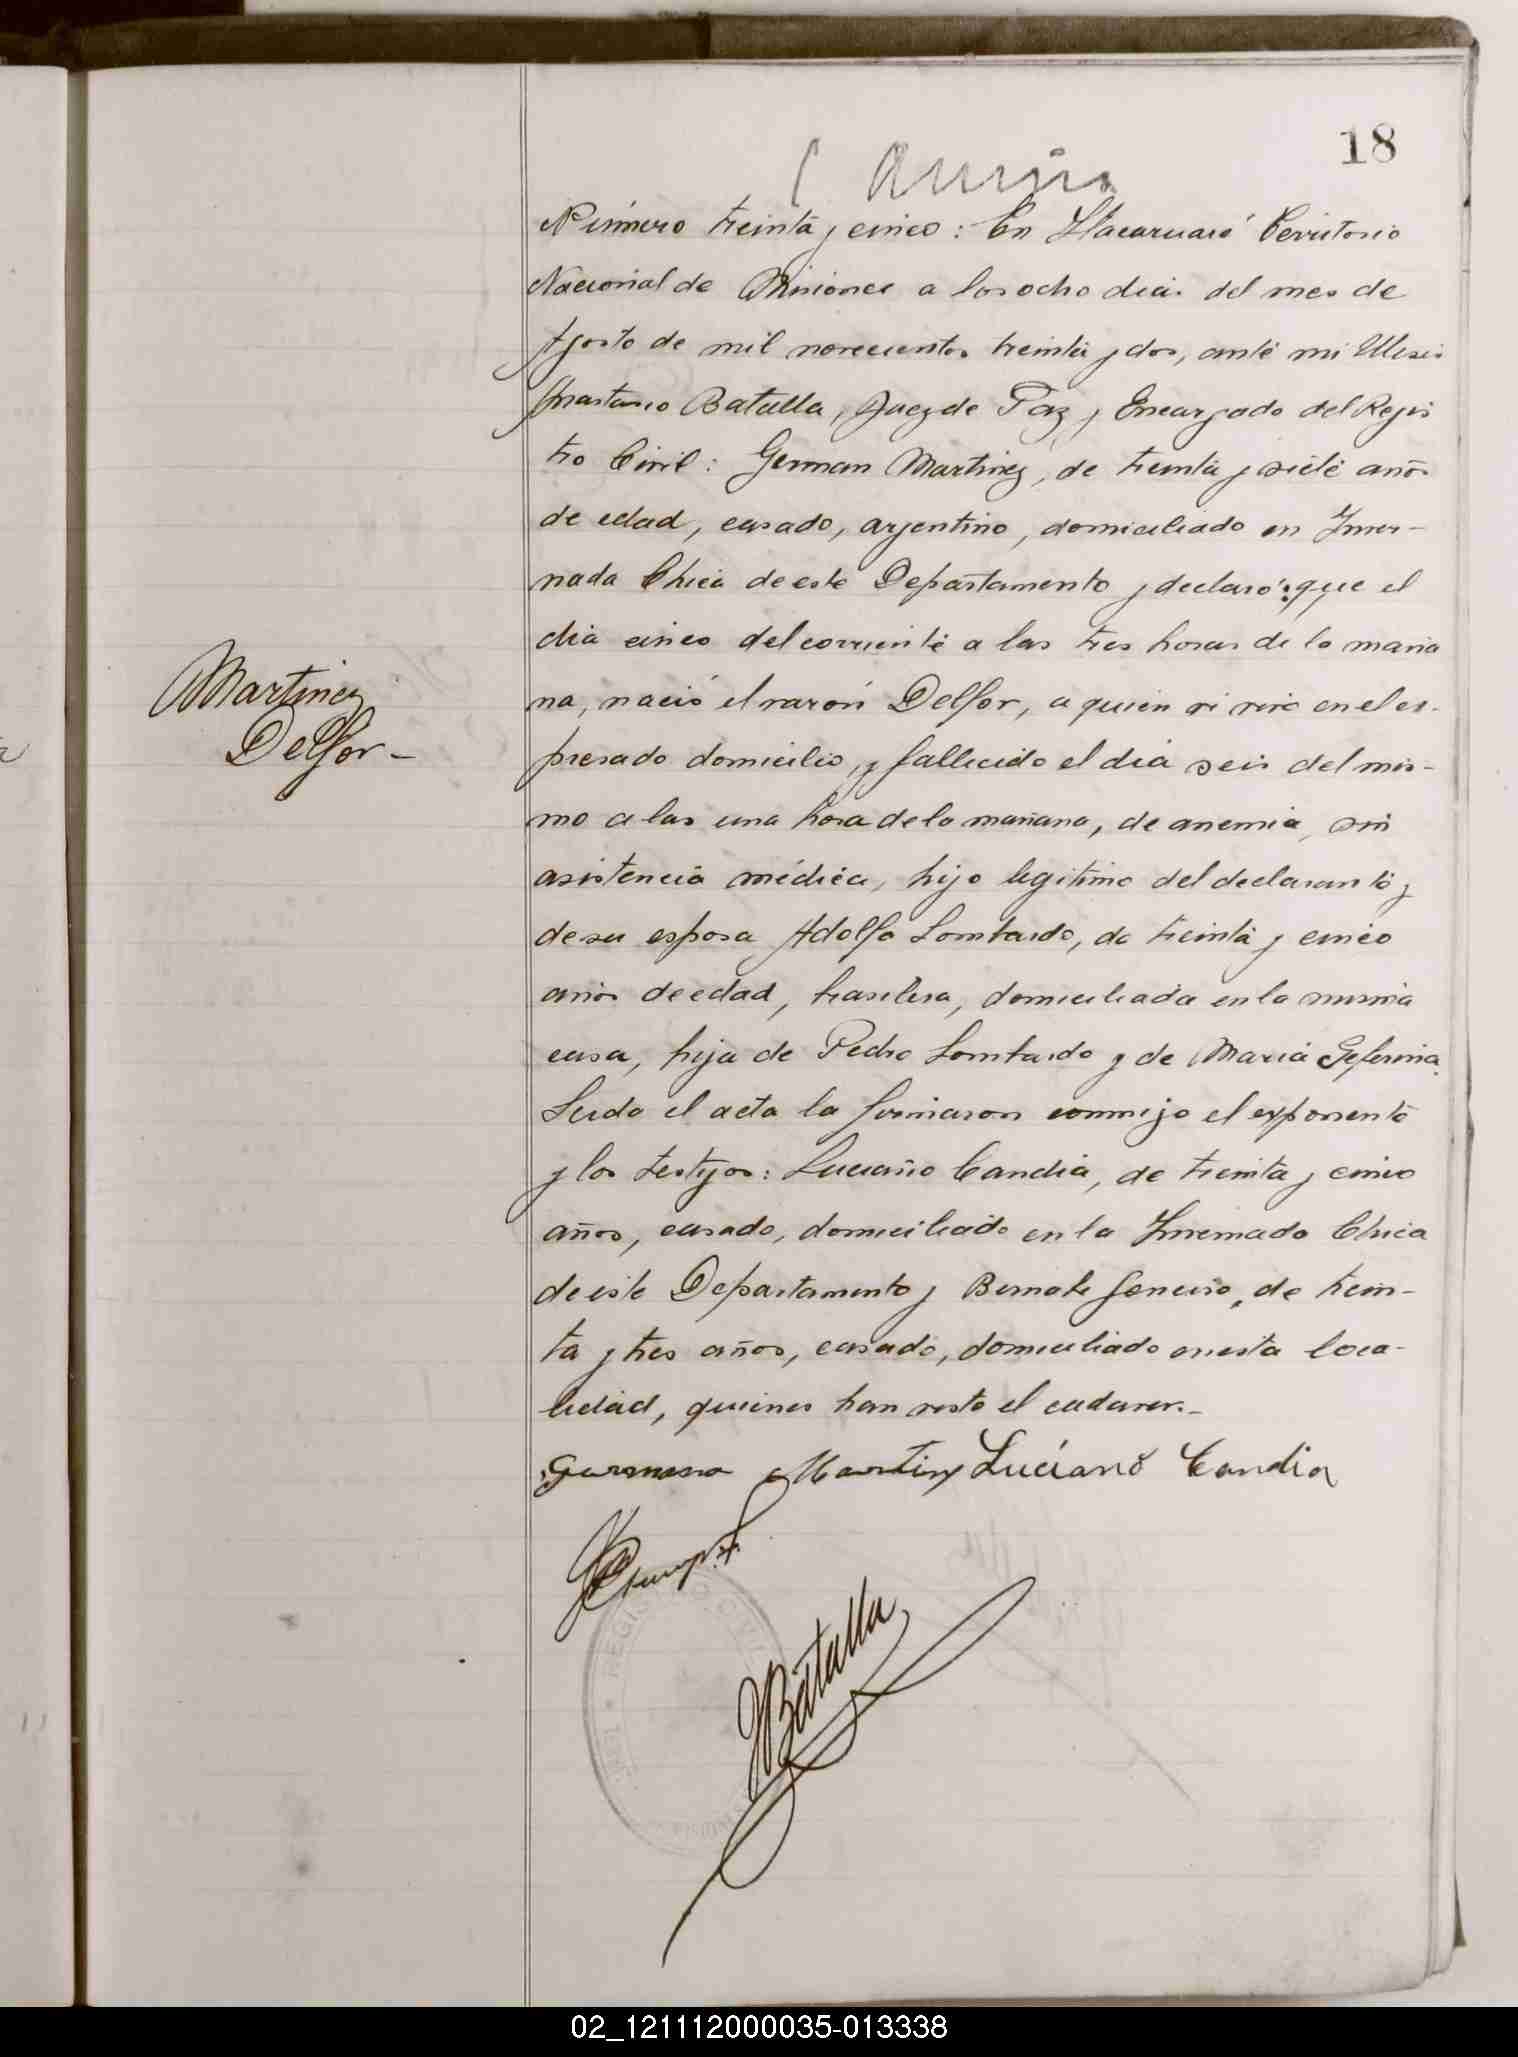 18
Número treinta y cinco: En Itacaruaré Territorio
Nacional de Misiones a los ocho dias del mes de
Agosto de mil novecientos treinta y dos, ante mi Ulises
Anastasio Batalla, Juez de Paz y Encargado del Regis
tro Civil: German Martinez, de treinta y siete años
de edad, casado, arjentino, domiciliado en Inver-
nada Chica de este Departamento y declaró: que el
dia cinco del corriente a las tres horas de la maña
na, nació el varón Delfor, a quien vi vivo en el ex-
presado domicilio, y fallecido el dia seis del mis-
mo a las una hora de la mañana, de anemia, sin
asistencia médica, hijo legitimo del declarante y
de su esposa Adolfa Lombardo, de treinta y cinco
años de edad, brasilera, domiciliada en la misma
casa, hija de Pedro Lombardo y de Maria Seferina.
Leida el acta la firmaron conmigo el exponente
y los testigos: Luciano Candia, de treinta y cinco
años, casado, domiciliado en la Invernada Chica
de este Departamento y de trein-
ta y tres años, casado, domiciliado en esta loca-
lidad, quienes han visto el cadaver.-
Martinez
Delfor-
German Martinez Luciano Candia
Batalla
REGISTRO CIVIL
02_121112000035-013338